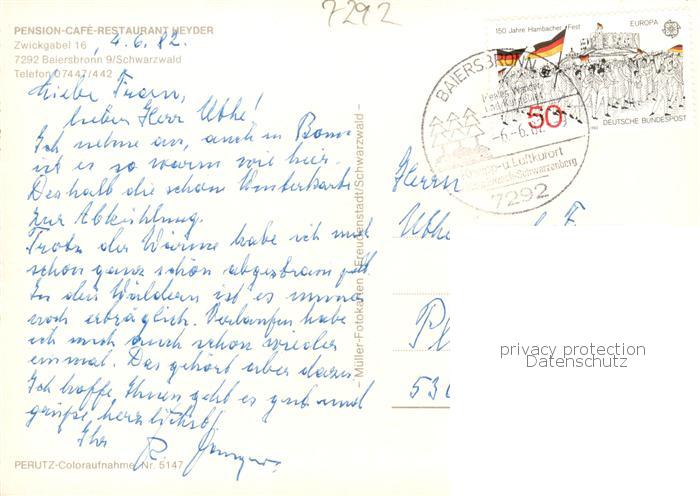 7292
PENSION-CAFÉ-RESTAURANT HEYDER
Zwickgabel 16, 4.6.82.
7292 Baiersbronn 9/Schwarzwald
Telefon 07447/442
Liebe Frau,
lieber Herr Uthe!
Ich nehme an, auch in Bonn
ist es so warm wie hier.
Deshalb die schon Winterkarte
zur Abkühlung.
Trotz der Wärme habe ich mich
schon ganz schön abgestrampelt
In den Wäldern ist es immer
noch erträglich. Verlaufen habe
ich mich auch schon wieder
einmal. Das gehört aber dazu.
Ich hoffe, Ihnen geht es gut und
grüße herzlichst
Ihr
R.
PERUTZ-Coloraufnahme, Nr. 5147
– Müller-Fotokarten · Freudenstadt/Schwarzwald –
150 Jahre Hambacher Fest
EUROPA
50
DEUTSCHE BUNDESPOST
BAIERSBRONN
-6.-6.82
u. Luftkurort
Schwarzenberg
7292
Herrn
Uthe
530
privacy protection
Datenschutz